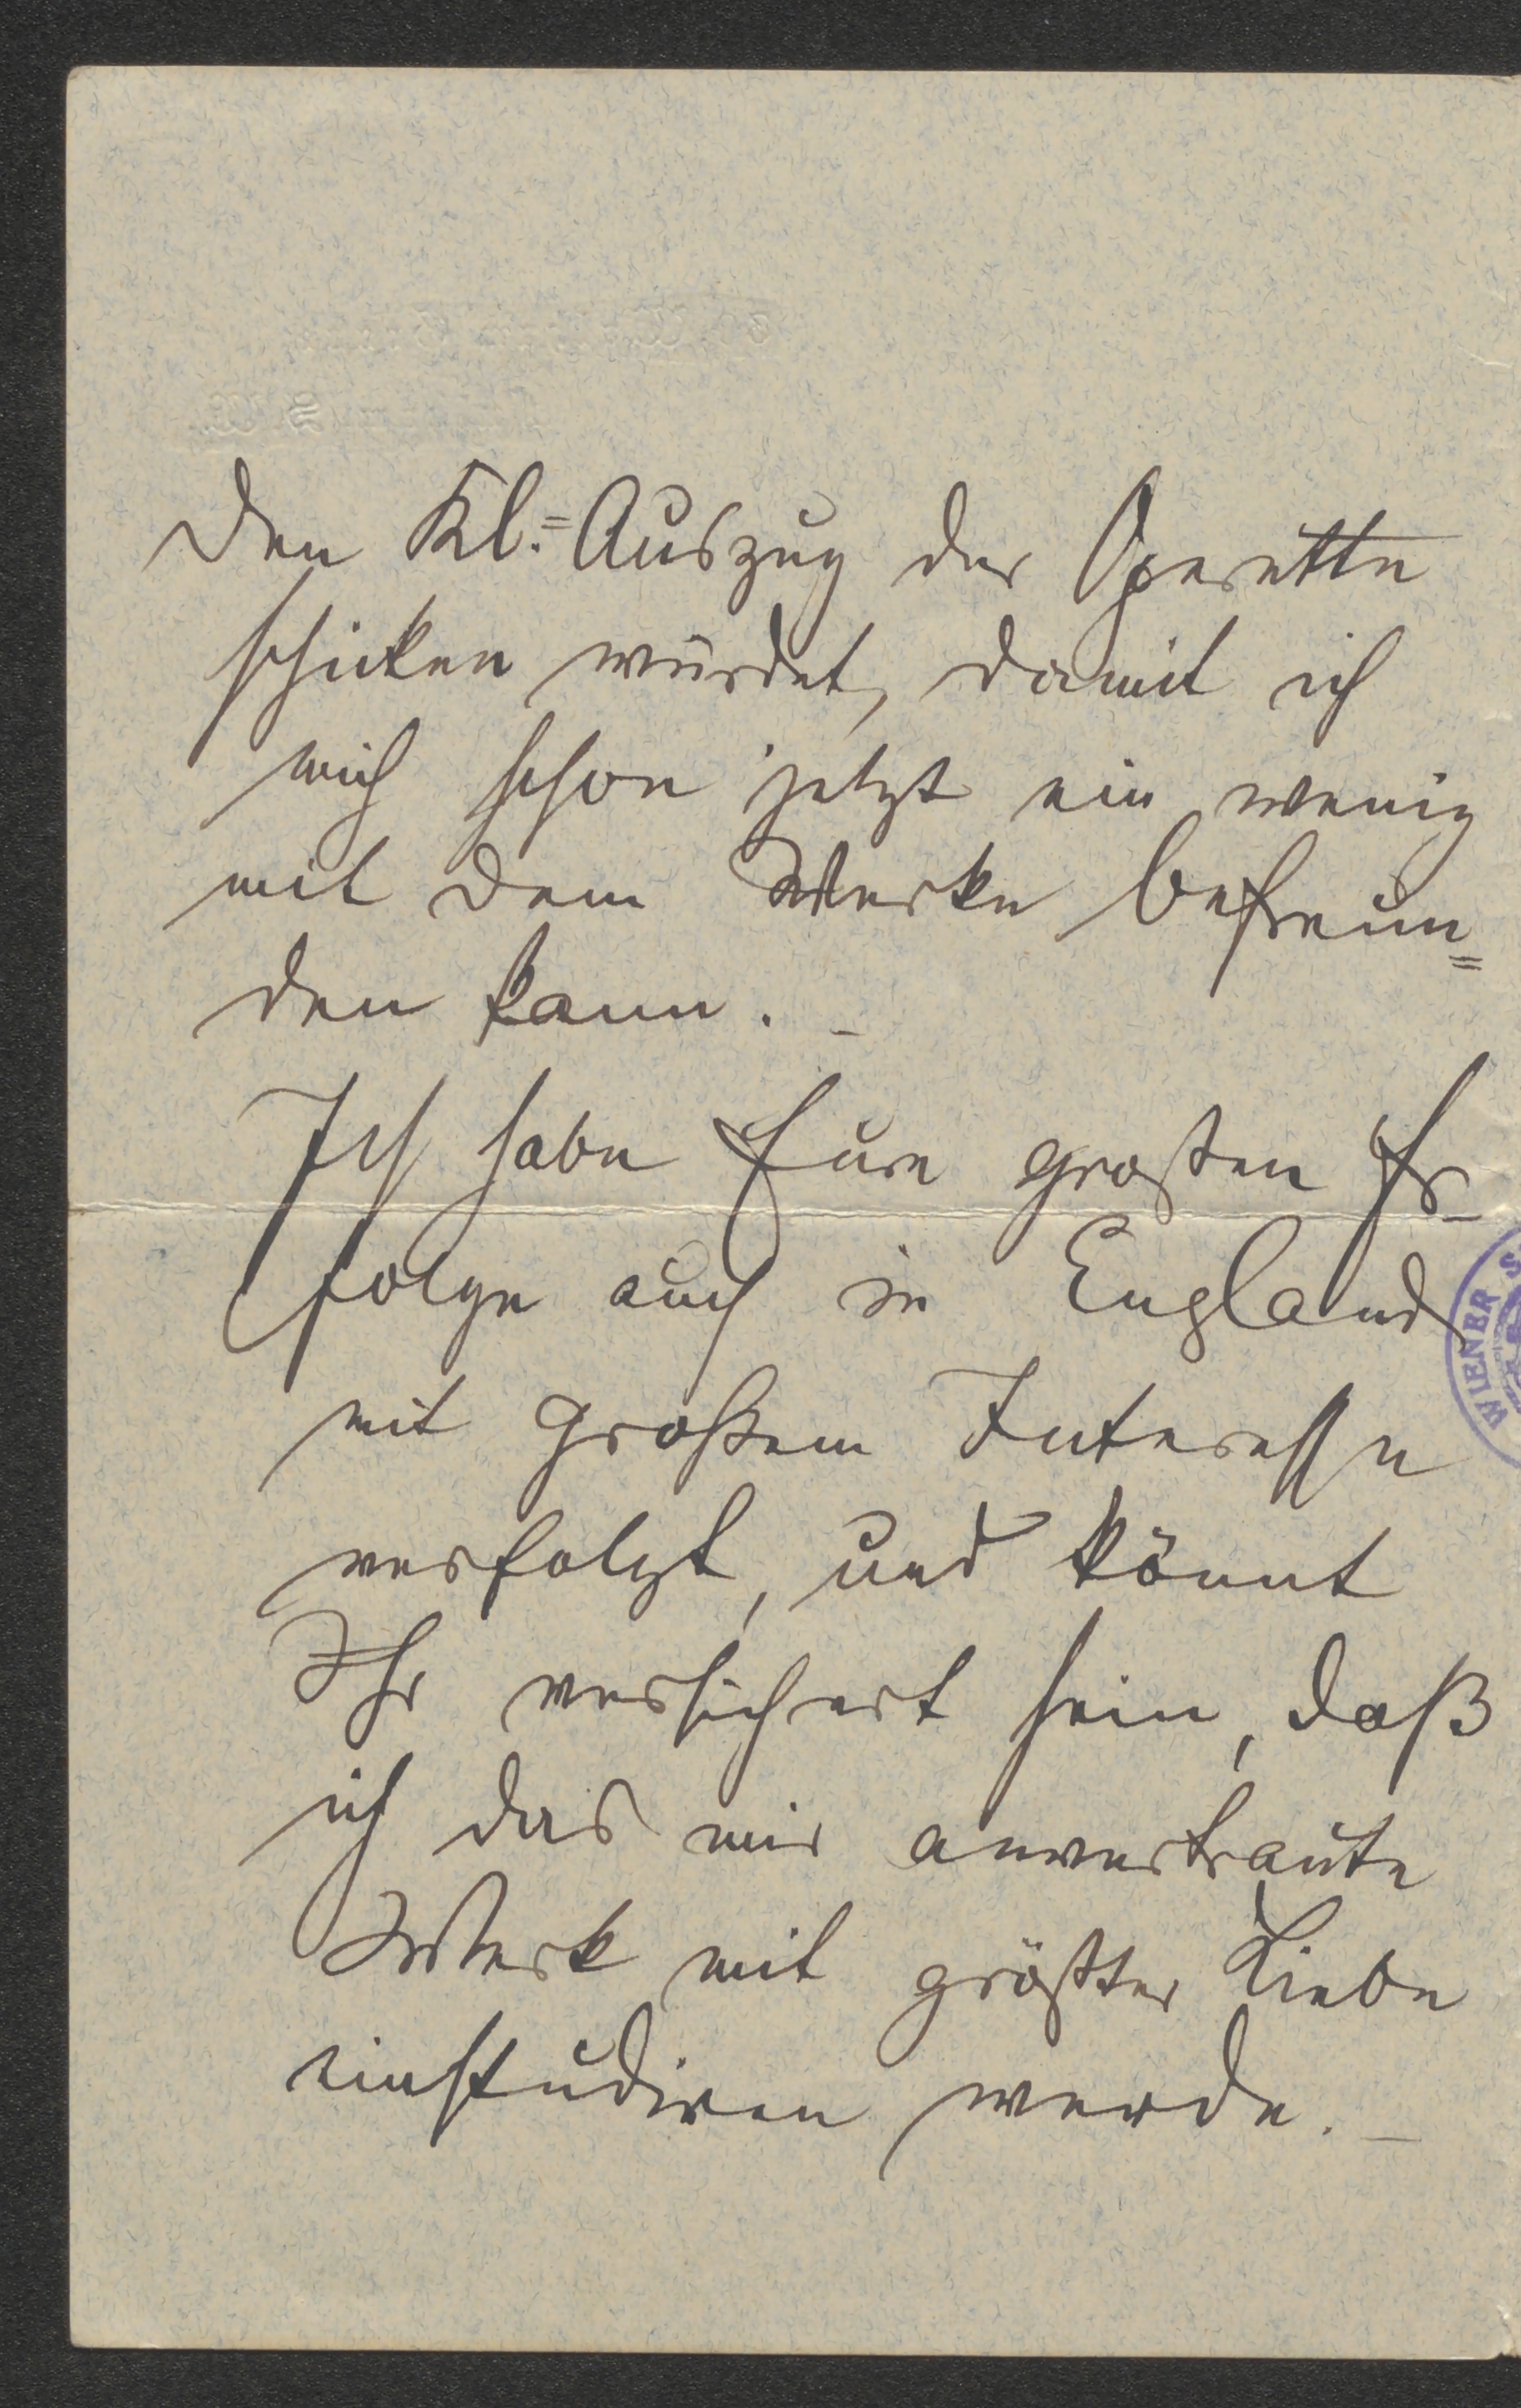 den Kl.=Auszug der Operette
schicken würdet, damit ich
mich schon jetzt ein wenig
mit dem Werke befreun=
den kann. –
Ich habe Eure großen Er-
folge auch in England
mit großem Interesse
verfolgt, und könnt
Ihr versichert sein, daß
ich das mir anvertraute
Werk mit größter Liebe
einstudiren werde. –
WIENER S